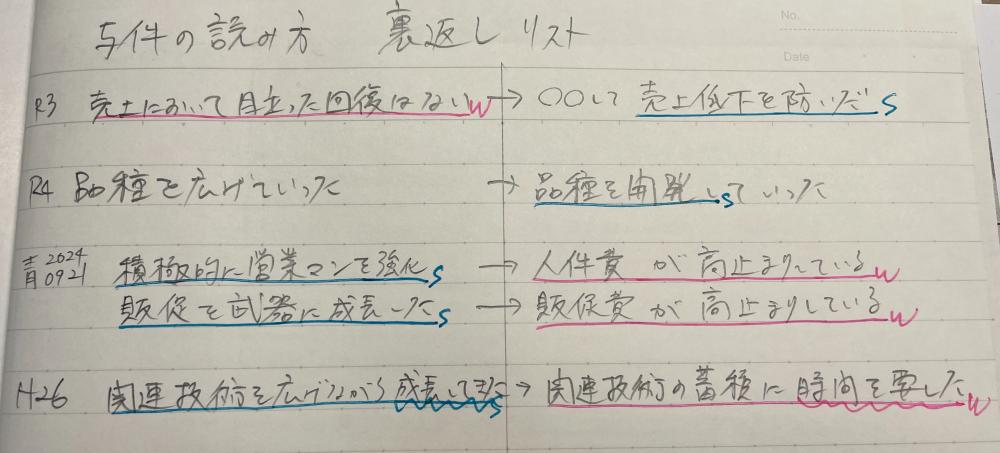 No.
Date
与件の読み方 裏返しリスト
R3 売上において目立った回復はない W → 〇〇して 売上低下を防いだ S
R4 品種を広げていった → 品種を開発 S していった
青 2024 0921 積極的に営業マンを強化 S → 人件費が高止まりしている W
販促を武器に成長した S → 販促費が高止まりしている W
H26 関連技術を広げながら成長してきた S → 関連技術の蓄積に時間を要した W